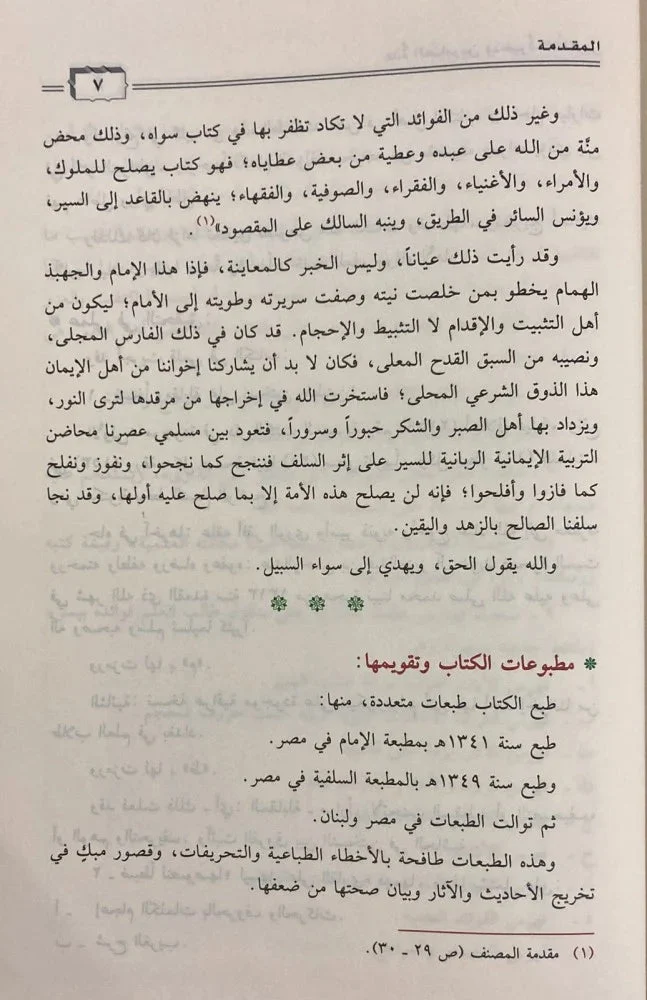 المقدمة
٧
وغير ذلك من الفوائد التي لا تكاد تظفر بها في كتاب سواه، وذلك محض
منَّة من الله على عبده وعطية من بعض عطاياه؛ فهو كتاب يصلح للملوك،
والأمراء، والأغنياء، والفقراء، والصوفية، والفقهاء؛ ينهض بالقاعد إلى السير،
ويؤنس السائر في الطريق، وينبه السالك على المقصود»(١).
وقد رأيت ذلك عياناً، وليس الخبر كالمعاينة، فإذا هذا الإمام والجهبذ
الهمام يخطو بمن خلصت نيته وصفت سريرته وطويته إلى الأمام؛ ليكون من
أهل التثبيت والإقدام لا التثبيط والإحجام. قد كان في ذلك الفارس المجلى،
ونصيبه من السبق القدح المعلى، فكان لا بد أن يشاركنا إخواننا من أهل الإيمان
هذا الذوق الشرعي المحلى؛ فاستخرت الله في إخراجها من مرقدها لترى النور،
ويزداد بها أهل الصبر والشكر حبوراً وسروراً، فتعود بين مسلمي عصرنا محاضن
التربية الإيمانية الربانية للسير على إثر السلف فننجح كما نجحوا، ونفوز ونفلح
كما فازوا وأفلحوا؛ فإنه لن يصلح هذه الأمة إلا بما صلح عليه أولها، وقد نجا
سلفنا الصالح بالزهد واليقين.
والله يقول الحق، ويهدي إلى سواء السبيل.
* مطبوعات الكتاب وتقويمها:
طبع الكتاب طبعات متعددة، منها:
طبع سنة ١٣٤١هـ بمطبعة الإمام في مصر.
وطبع سنة ١٣٤٩هـ بالمطبعة السلفية في مصر.
ثم توالت الطبعات في مصر ولبنان.
وهذه الطبعات طافحة بالأخطاء الطباعية والتحريفات، وقصور مبكٍ في
تخريج الأحاديث والآثار وبيان صحتها من ضعفها.
(١) مقدمة المصنف (ص ٢٩ ـ ٣٠).